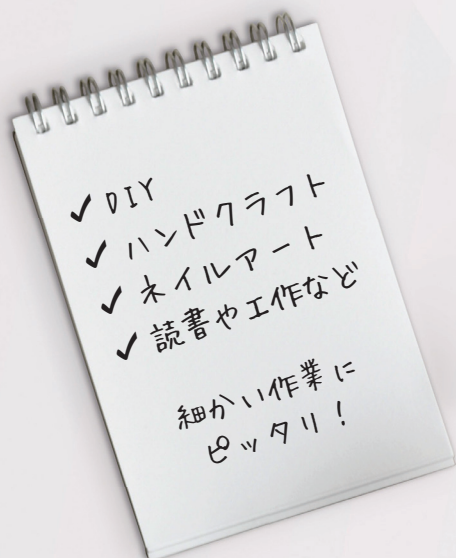 ✓ DIY
✓ ハンドクラフト
✓ ネイルアート
✓ 読書や工作など
細かい作業に
ピッタリ！